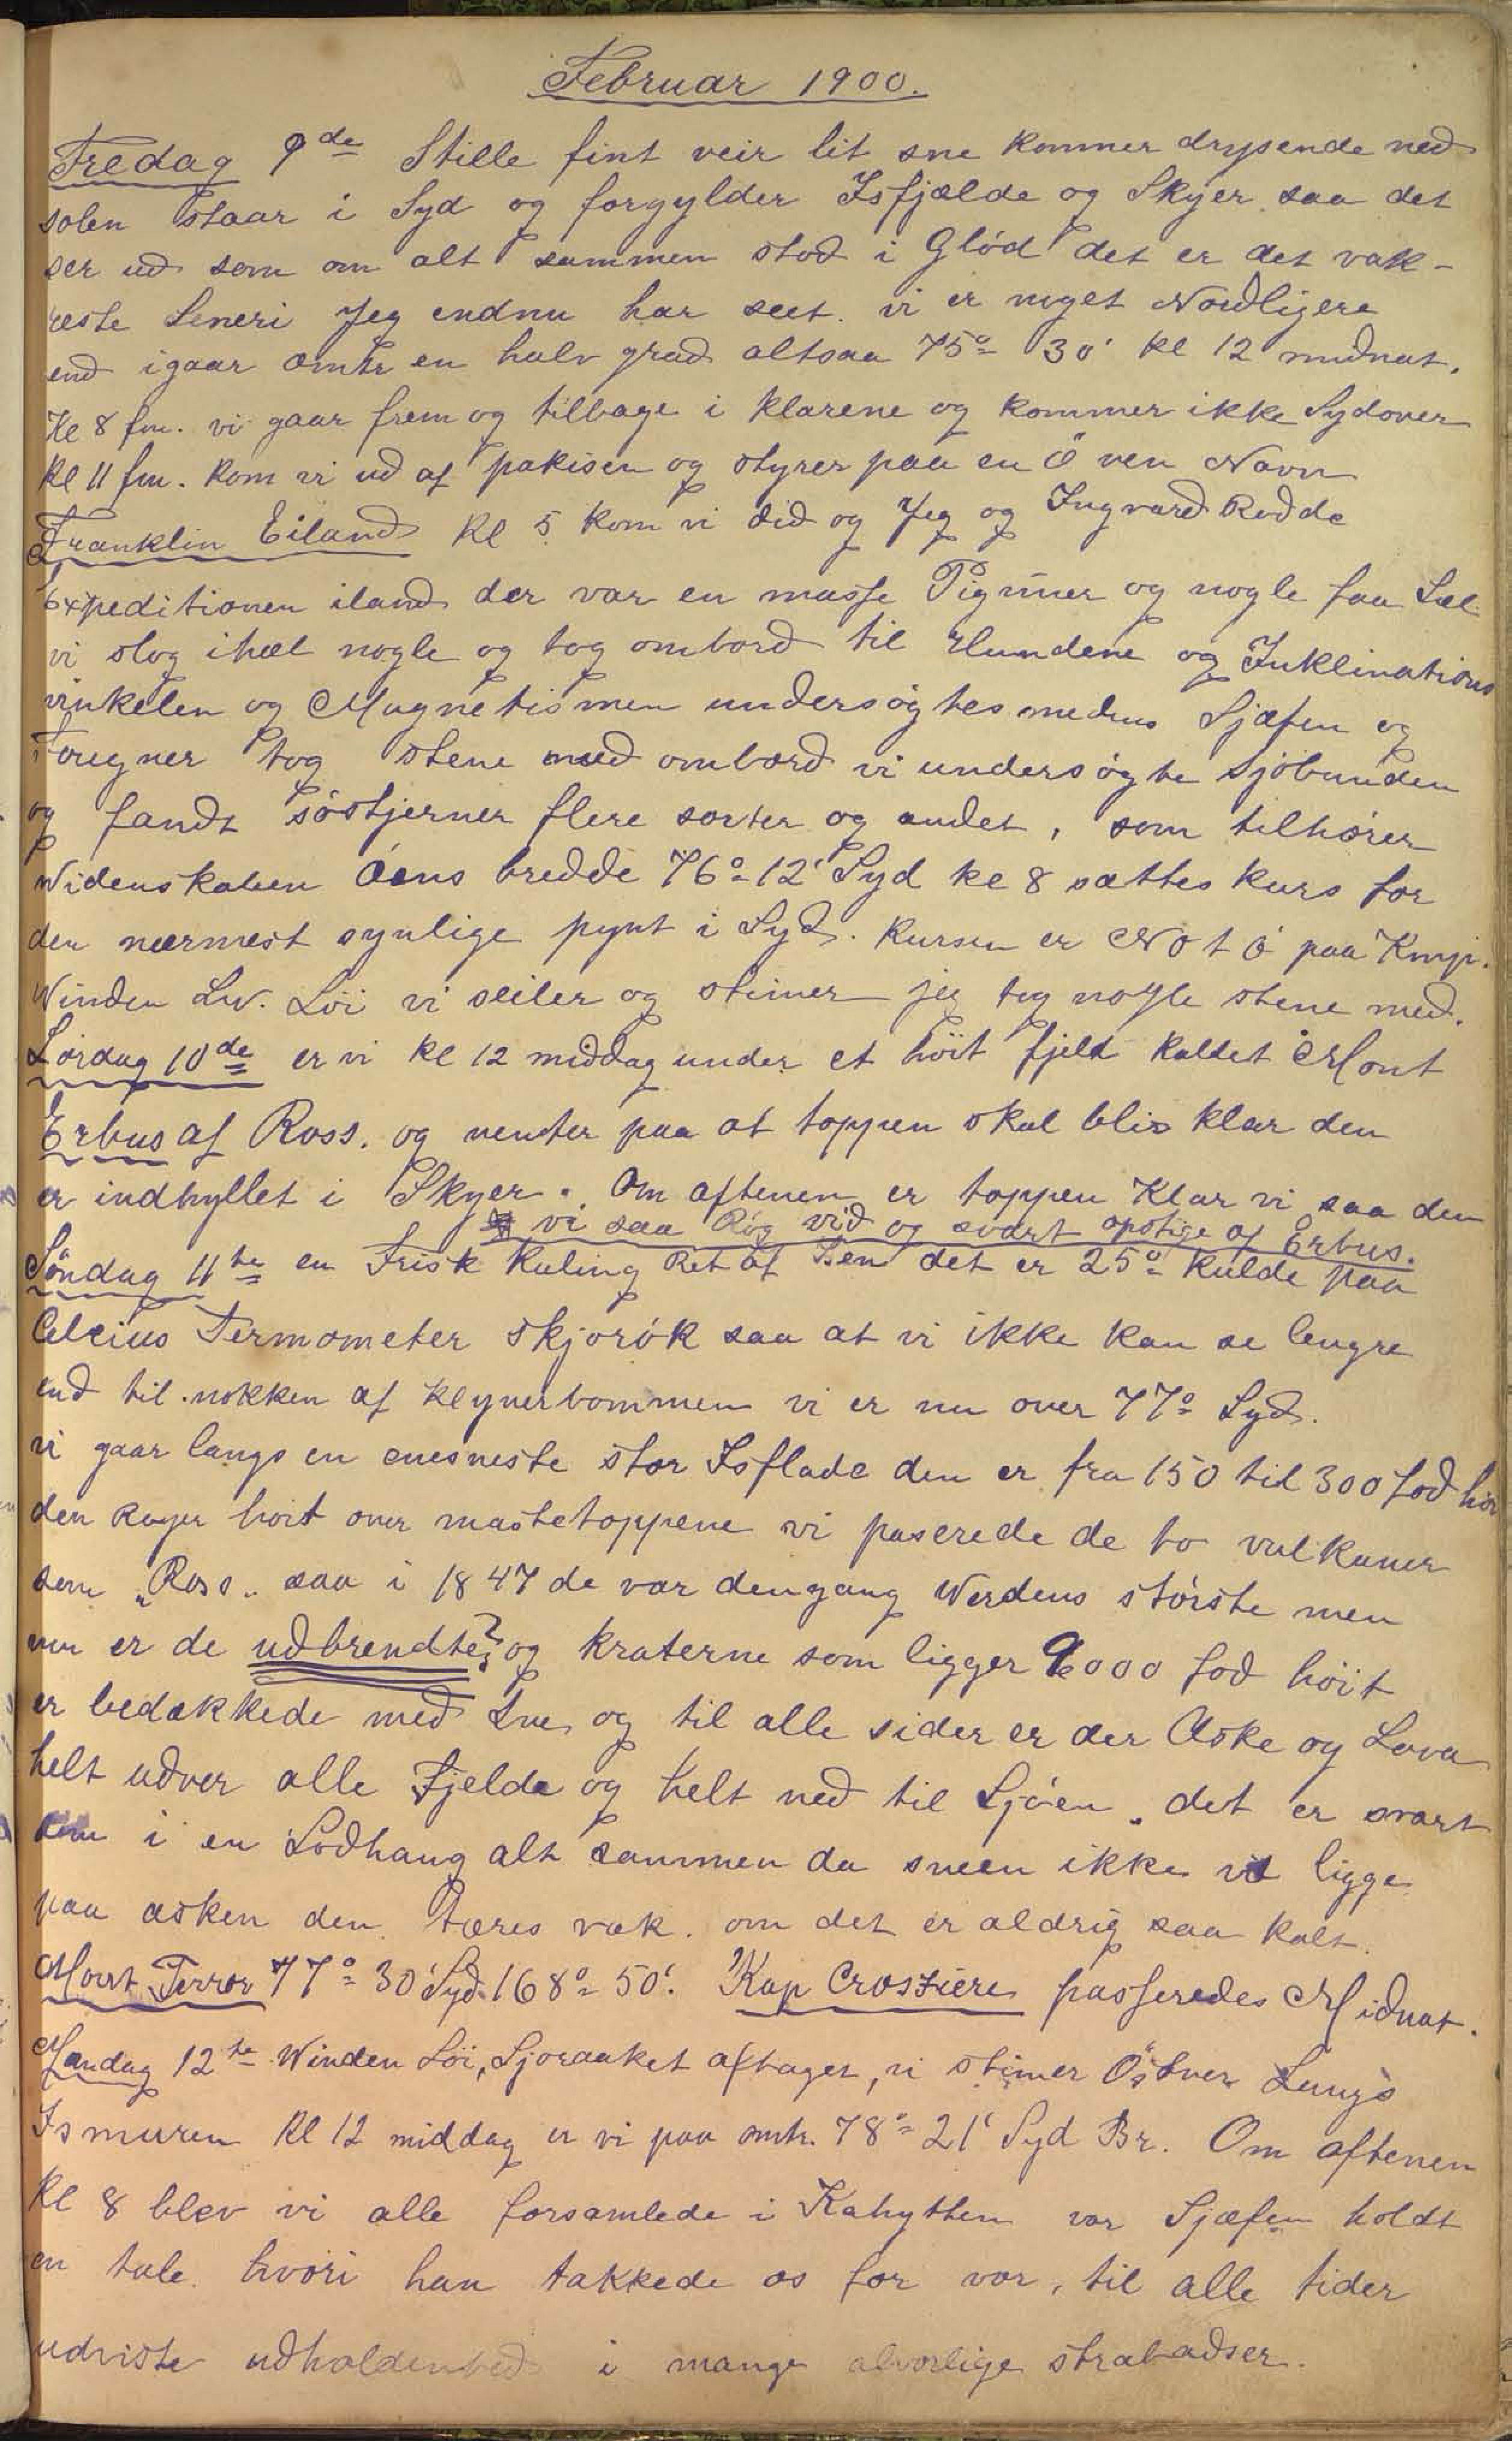 Februar 1900.
Fredag 9de Stille fint veir lit sne kommer drysende ned
solen staar i Syd og forgylder Isfjælde og Skyer saa det
ser ud som om alt sammen stod i Glød det er det vak-
reste Seneri Jeg endnu har seet. vi er noget Nordligere
end igaar omtr en halv grad altsaa 75° 30' kl 12 midnat.
Kl 8 fm. vi gaar frem og tilbage i klarene og kommer ikke Sydover
kl 11 fm. kom vi ud af pakisen og styrer paa en Ö ven Navn
Franklin Eiland kl 5 kom vi did og Jeg og Ingvard Rodde
Expeditionen iland der var en masse Pigviner og nogle faa Sæl
vi slog ihæl nogle og tog ombord til Hundene og Inklinations
vinkelen og Magnetismen undersøgtes medens Sjæfen og
Fougner tog stene med ombord vi undersøgte Sjøbunden
og fandt søstjerner flere sorter og andet, som tilhører
Widenskaben Øens bredde 76° 12' Syd kl 8 sattes kurs for
den nærmest synlige pynt i Syd. kursen er NO t O paa Kmp.
Winden Lw. Löi vi seiler og stimer jeg tog nogle stene med.
Lørdag 10de er vi kl 12 middag under et høit fjeld kaldet Mont
Erbus af Ross. og venter paa at toppen skal bliv klar den
er indhyllet i Skyer. Om aftenen er toppen Klar vi saa den
vi saa Røg vid og svart opstige af Erbus.
Søndag 11te en Frisk Kuling Ret af Isen det er 25° kulde paa
Celcius Termometer skjorök saa at vi ikke kan se lengre
end til nokken af klyverbommen vi er nu over 77° Syd.
vi gaar langs en enesneste stor Isflade den er fra 150 til 300 fod høi
den Rager høit over mastetoppene vi paserede de to vulkaner
som "Ross" saa i 1847 de var dengang Werdens største men
nu er de udbrendte? og kraterne som ligger 9000 fod höit
er bedækkede med Sne og til alle sider er der Aske og Lava
helt udver alle Fjelde og helt ned til Sjøen. det er svart
som i en Sodhaug alt sammen da sneen ikke vil ligge
paa asken den tæres væk. om det er aldrig saa kalt.
Mont Terror 77° 30' Syd. 168° 50'. Kap Crosziere passeredes Midnat.
Mandag 12te Winden Löi, Sjoraaket aftager, vi stimer Östver Langs
Ismuren Kl 12 middag er vi paa omtr. 78° 21' Syd Br. Om aftenen
Kl 8 blev vi alle forsamlede i Kahytten vor Sjæfen holdt
en tale hvori han takkede os for vor, til alle tider
udviste udholdenhed i mange alvorlige strabadser.